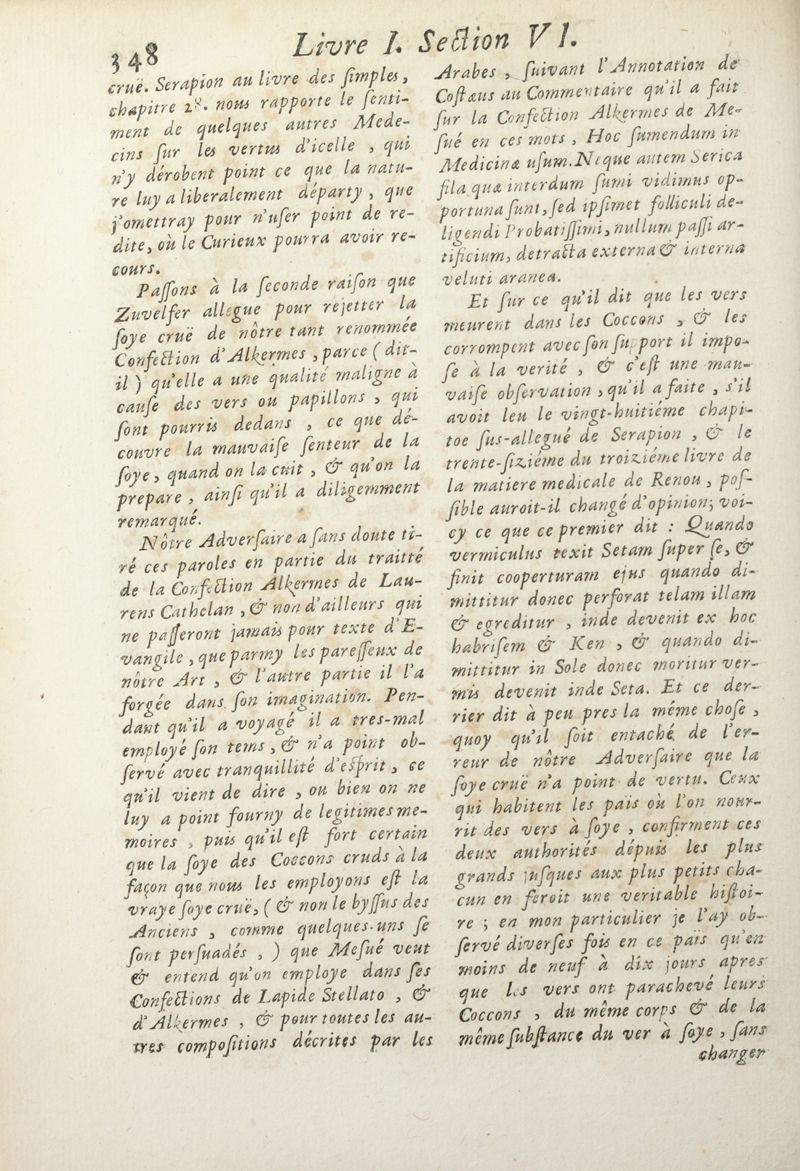 348
Livre I. Section VI.
cruë. Serapion au livre des simples,
chapitre 28. nous rapporte le senti-
ment de quelques autres Mede-
cins sur les vertus d'icelle, qui
n'y dérobent point ce que la natu-
re luy a liberalement départy, que
j'omettray pour n'user point de re-
dite, où le Curieux pourra avoir re-
cours.
Passons à la seconde raison que
Zuvelfer allegue pour rejetter la
soye cruë de nôtre tant renommée
Confection d'Alkermes, parce (dit-
il) qu'elle a une qualité maligne à
cause des vers ou papillons, qui
sont pourris dedans, ce que dé-
couvre la mauvaise senteur de la
soye, quand on la cuit, & qu'on la
prepare, ainsi qu'il a diligemment
remarqué.
Nôtre Adversaire a sans doute ti-
ré ces paroles en partie du traitté
de la Confection Alkermes de Lau-
rens Cathelan, & non d'ailleurs qui
ne passeront jamais pour texte d'E-
vangile, que parmy les paresseux de
nôtre Art, & l'autre partie il l'a
forgée dans son imagination. Pen-
dant qu'il a voyagé il a tres-mal
employé son tems, & n'a point ob-
servé avec tranquillité d'esprit, ce
qu'il vient de dire, ou bien on ne
luy a point fourny de legitimes me-
moires, puis qu'il est fort certain
que la soye des Coccons cruds à la
façon que nous les employons est la
vraye soye cruë, (& non le byssus des
Anciens, comme quelques-uns se
sont persuadés,) que Mesué veut
& entend qu'on employe dans ses
Confections de Lapide Stellato, &
d'Alkermes, & pour toutes les au-
tres compositions décrites par les
Arabes, suivant l'Annotation de
Costæus au Commentaire qu'il a fait
sur la Confection Alkermes de Me-
sué en ces mots, Hoc sumendum in
Medicinæ usum. Neque autem Serica
fila quæ interdum sumi vidimus op-
portuna sunt, sed ipsimet folliculi de-
ligendi Probatissimi, nullum passi ar-
tificium, detracta externa & interna
veluti aranea.
Et sur ce qu'il dit que les vers
meurent dans les Coccons, & les
corrompent avec son support il impo-
se à la verité, & c'est une mau-
vaise observation, qu'il a faite, s'il
avoit leu le vingt-huitiéme chapi-
toe sus-allegué de Serapion, & le
trente-siziéme du troiziéme livre de
la matiere medicale de Renou, pos-
sible auroit-il changé d'opinion; voi-
cy ce que ce premier dit : Quando
vermiculus texit Setam super se, &
finit cooperturam ejus quando di-
mittitur donec perforat telam illam
& egreditur, inde devenit ex hoc
habrisem & Ken, & quando di-
mittitur in Sole donec moritur ver-
mis devenit inde Seta. Et ce der-
rier dit à peu pres la même chose,
quoy qu'il soit entaché de l'er-
reur de nôtre Adversaire que la
soye cruë n'a point de vertu. Ceux
qui habitent les païs où l'on nour-
rit des vers à soye, confirment ces
deux authorités dépuis les plus
grands jusques aux plus petits cha-
cun en feroit une veritable histoi-
re ; en mon particulier je l'ay ob-
servé diverses fois en ce païs qu'en
moins de neuf à dix jours apres
que les vers ont parachevé leurs
Coccons, du même corps & de la
même substance du ver à soye, sans
changer